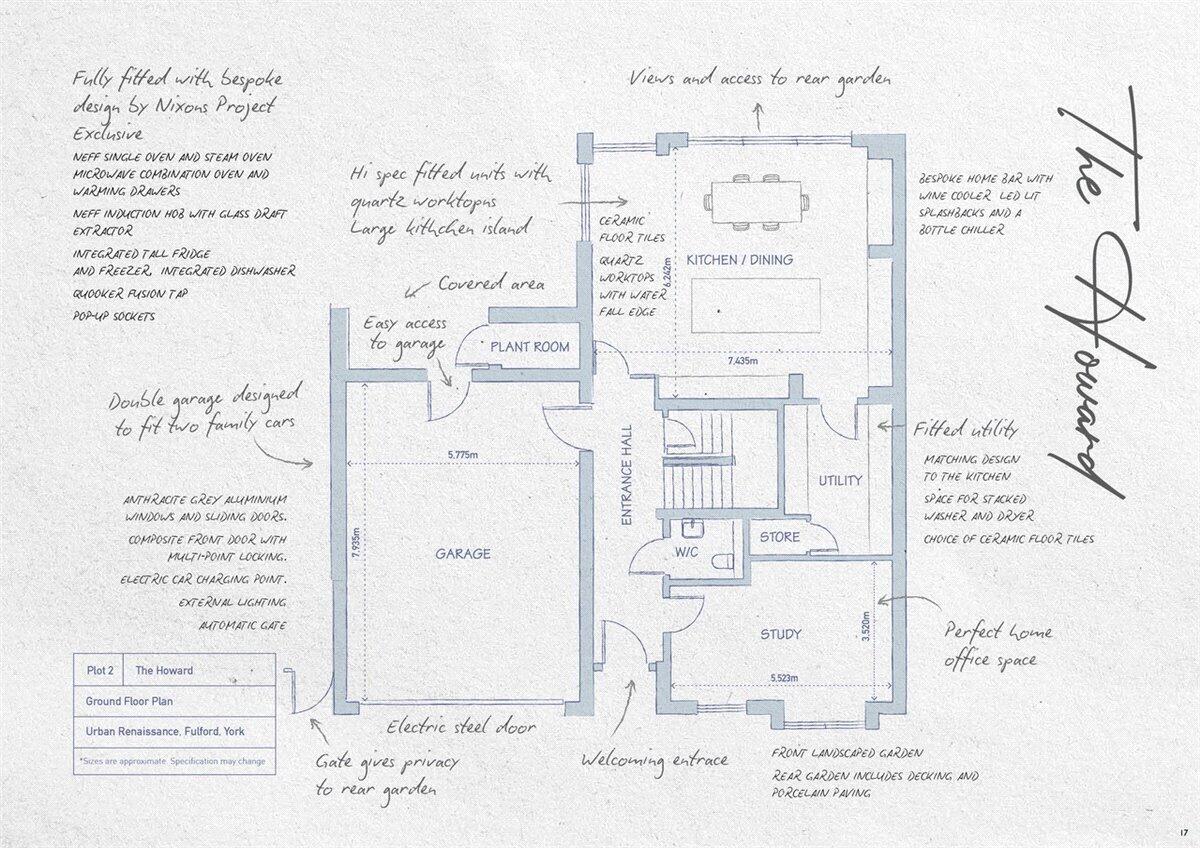 Fully fitted with bespoke
design by Nixons Project
Exclusive
NEFF SINGLE OVEN AND STEAM OVEN
MICROWAVE COMBINATION OVEN AND
WARMING DRAWERS
NEFF INDUCTION HOB WITH GLASS DRAFT
EXTRACTOR
INTEGRATED TALL FRIDGE
AND FREEZER, INTEGRATED DISHWASHER
QUOOKER FUSION TAP
POP-UP SOCKETS
Views and access to rear garden
Hi spec fitted units with
quartz worktopns
Large kithchen island
CERAMIC
FLOOR TILES
QUARTZ
WORKTOPS
WITH WATER
FALL EDGE
6,242m
KITCHEN / DINING
7,435m
BESPOKE HOME BAR WITH
WINE COOLER LED LIT
SPLASHBACKS AND A
BOTTLE CHILLER
The Howard
Covered area
Easy access
to garage
PLANT ROOM
Double garage designed
to fit two family cars
5,775m
7,935m
GARAGE
ENTRANCE HALL
UTILITY
STORE
W/C
Fitted utility
MATCHING DESIGN
TO THE KITCHEN
SPACE FOR STACKED
WASHER AND DRYER
CHOICE OF CERAMIC FLOOR TILES
ANTHRACITE GREY ALUMINIUM
WINDOWS AND SLIDING DOORS.
COMPOSITE FRONT DOOR WITH
MULTI-POINT LOCKING.
ELECTRIC CAR CHARGING POINT.
EXTERNAL LIGHTING
AUTOMATIC GATE
STUDY
3,520m
5,523m
Perfect home
office space
Plot 2 The Howard
Ground Floor Plan
Urban Renaissance, Fulford, York
*Sizes are approximate. Specification may change
Electric steel door
Gate gives privacy
to rear garden
Welcoming entrace
FRONT LANDSCAPED GARDEN
REAR GARDEN INCLUDES DECKING AND
PORCELAIN PAVING
17